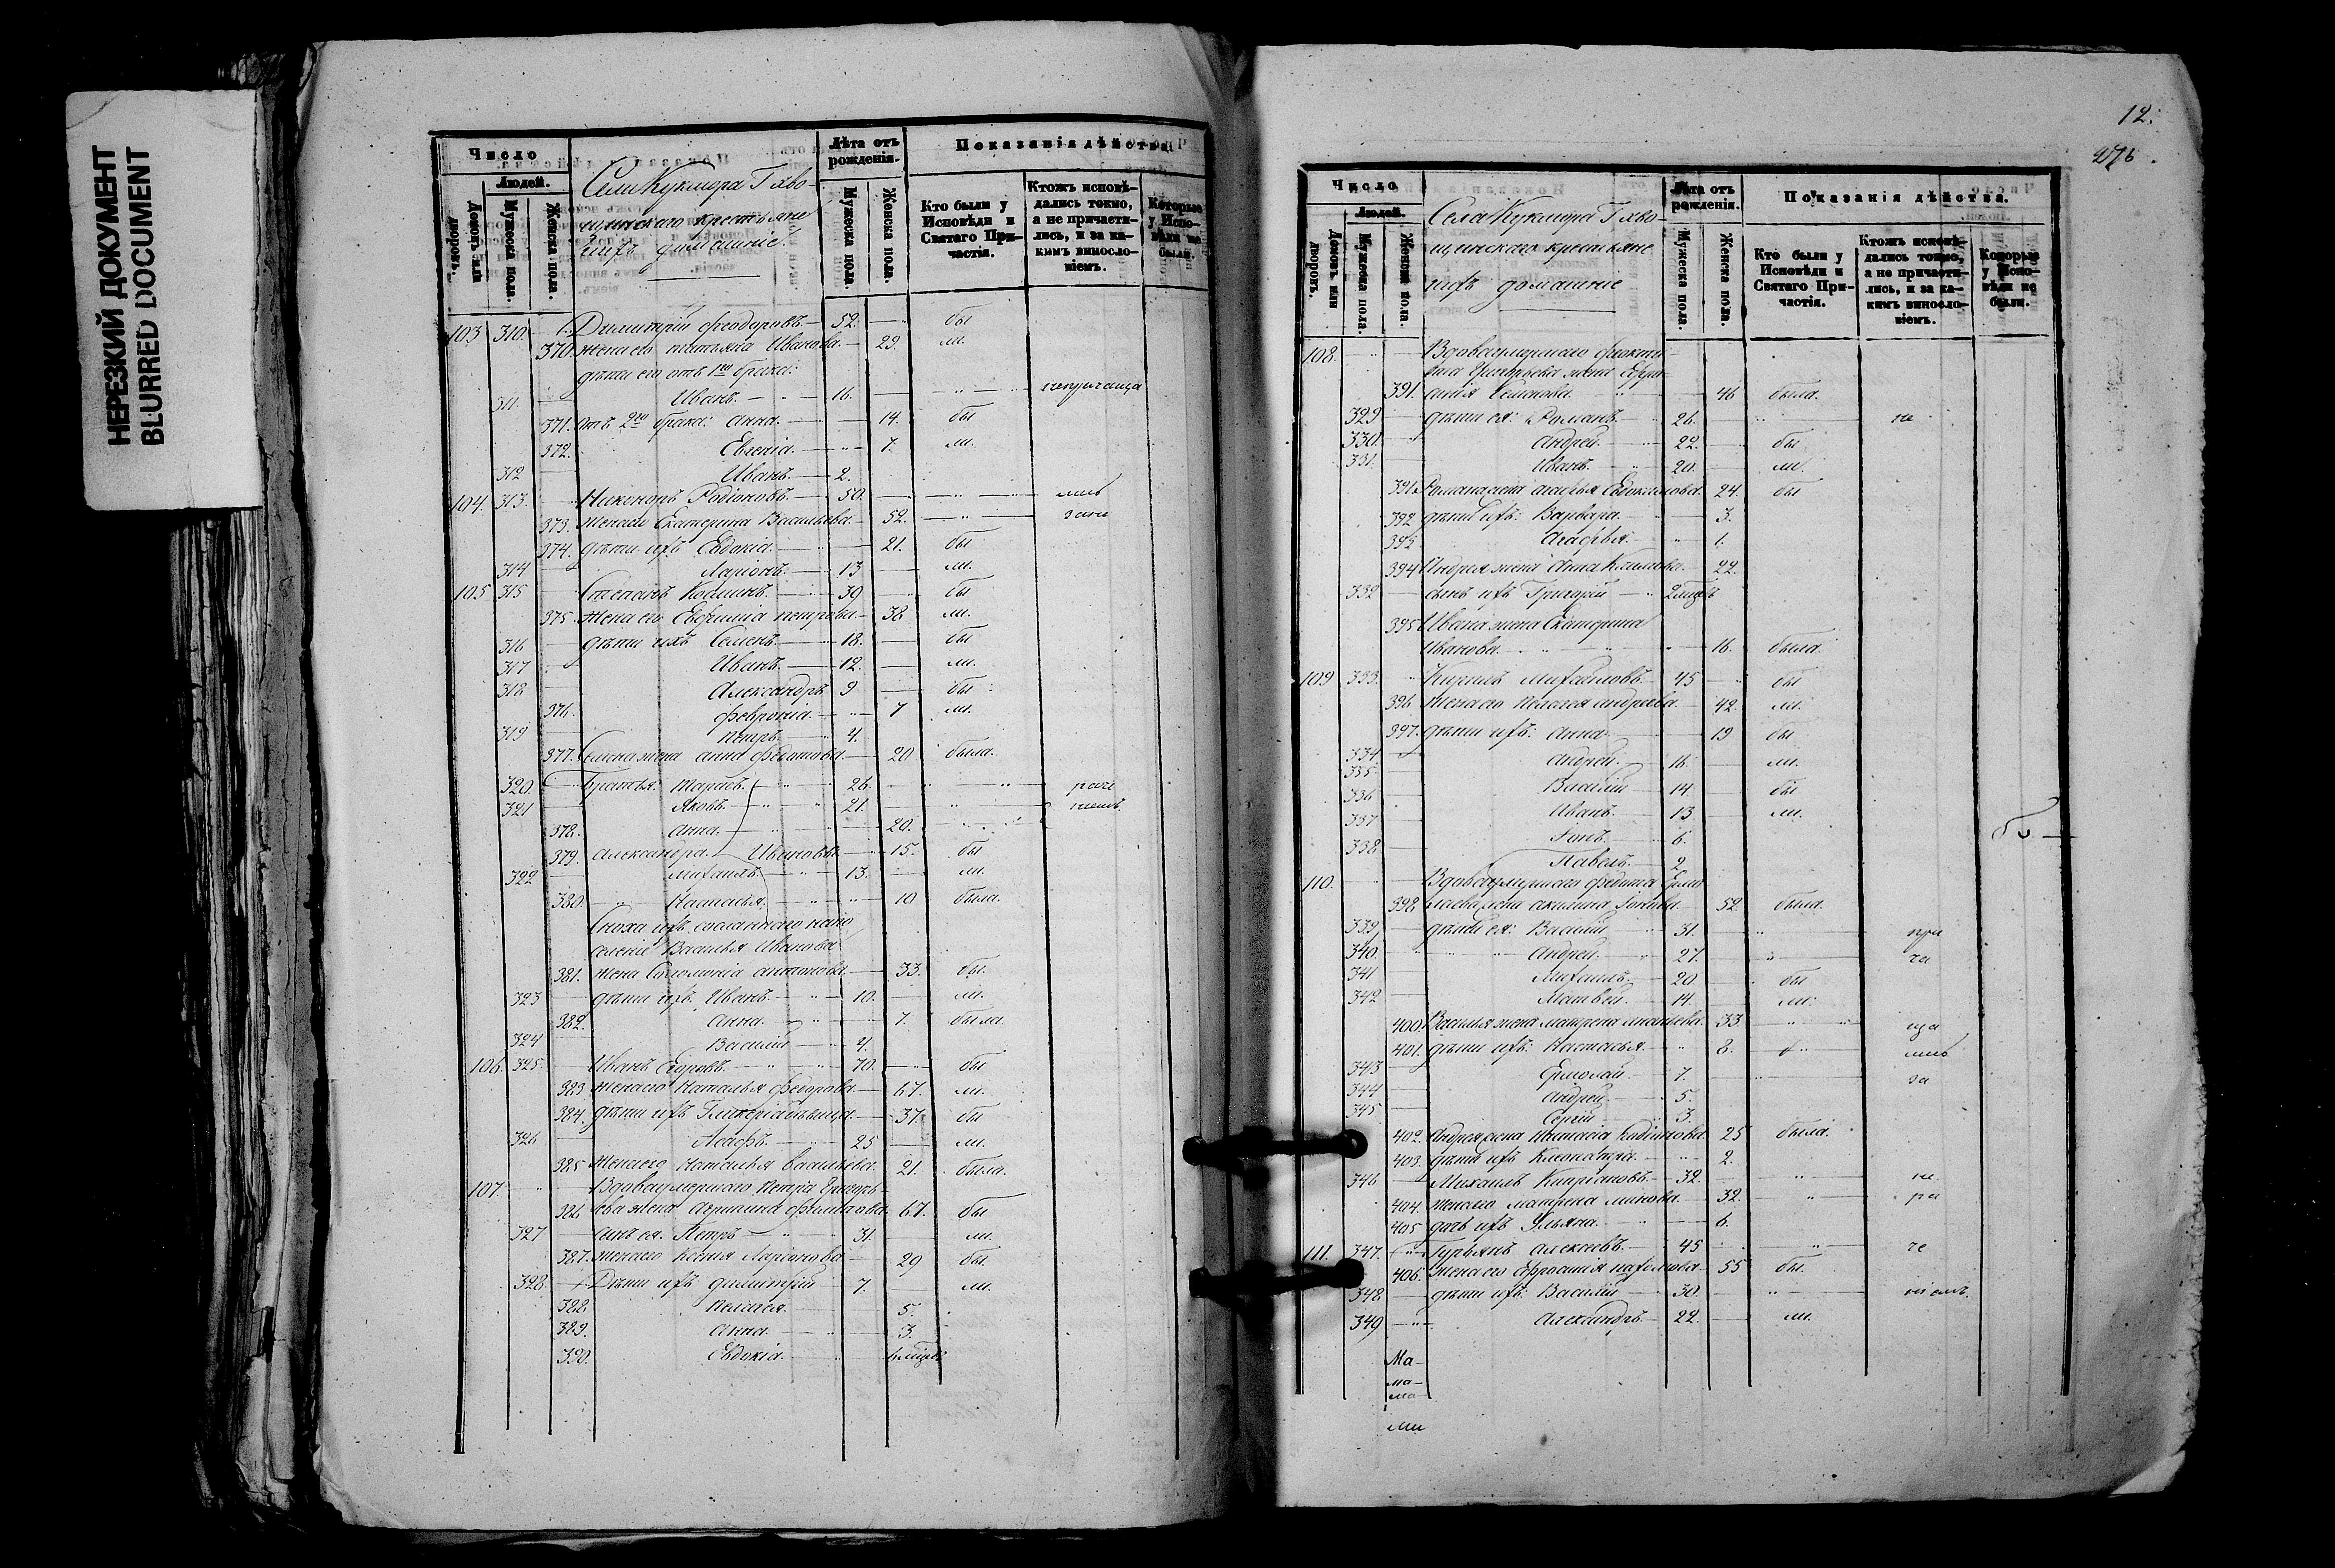 НЕРЕЗКИЙ ДОКУМЕНТ
BLURRED DOCUMENT
Число
Людей.
Домовъ или дворовъ.
Мужеска пола.
Женска пола.
Села Кукмора
крестьяне
ихъ домашніе
Лѣта отъ рожденія.
Мужеска пола.
Женска пола.
Показанія дѣйства
Кто были у Исповѣди и Святаго Причастія.
Ктожъ исповѣдались токмо, а не причастились, и за какимъ винословіемъ.
Которые у Исповѣди не были.
103 310. Димитрій Феодоровъ 52. бы
370. жена его Татьяна Иванова 29. ли.
дѣти его отъ 1го брака:
311 Иванъ. 16.
371. отъ 2го брака: Анна. 14. бы
372. Евгенія. 7. ли.
312 Иванъ. 2.
104. 313. Никоноръ Родіоновъ. 50.
373. жена его Екатерина Васильева. 52.
374. дѣти ихъ Евдокія. 21. бы
314 Ларіонъ. 13 ли.
105 315 Степанъ Козминъ. 39 бы
375. жена его Евфимія Петрова 38 ли.
316 дѣти ихъ Семенъ 18. бы
317 Иванъ. 12. ли.
318 Александръ 9 бы
376. Февронія. 7 ли.
319 Петръ. 4.
377. Семена жена Анна Федотова. 20 была.
320. Братья 26.
321 Яковъ. 21.
378. Анна. 20.
379. Александра. Ивановы 15. бы
322 Михаилъ. 13. ли.
380. Настасья. 10 была.
Сноха ихъ сосланнаго на по
селеніе Василья Иванова
381. жена Соломонія Антонова. 33. бы.
323 дѣти ихъ Иванъ. 10. ли.
382. Анна. 7. была
324 Василій 4.
106. 325. Иванъ Егоровъ. 70. бы
383 жена его Наталья Федорова 67. ли.
384. дѣти ихъ Гликерія дѣвица. 37. бы
326 Асафъ. 25 ли.
385 жена его Наталья Васильева. 21. была.
107. Вдова умершаго Петра Григорь-
386. ева жена Агрипина Филипова. 67. бы
327 сынъ ея Петръ 31. ли.
387. жена его Ксенія Ларіонова 29 бы
328. Дѣти ихъ Димитрій 7. ли.
388 Пелагея. 5.
389. Анна. 3.
390. Евдокія.
12.
276
Число
Людей.
Домовъ или дворовъ.
Мужеска пола.
Женска пола.
Села Кукмора
крестьяне
ихъ домашніе
Лѣта отъ рожденія.
Мужеска пола.
Женска пола.
Показанія дѣйства.
Кто были у Исповѣди и Святаго Причастія.
Ктожъ исповѣдались токмо, а не причастились, и за какимъ винословіемъ.
Которые у Исповѣди не были.
108. Вдова умершаго Феокти-
ста Григорьева жена Ефро-
391. синія Семенова. 46 была.
329 дѣти ея: Романъ. 26. не
330. Андрей. 22. бы
331. Иванъ. 20. ли.
391. Романа жена Агафья Евдокимова. 24. бы
392 дѣти ихъ: Варвара. 3.
393 Агафья. 1.
394 Андрея жена Анна Климова. 22.
332 сынъ ихъ Григорій
395 Ивана жена Екатерина
Иванова. 16. была.
109 333. Кирилъ Михайловъ. 45 бы
396 жена его Пелагея Андреева. 42. ли.
397. дѣти ихъ: Анна. 19 бы
334. Андрей. 16. ли.
335 Василій 14. бы
336 Иванъ. 13 ли.
337 Іонъ. 6.
338 Павелъ. 2.
110. Вдова умершаго Федота
398. жена Акилина 52. была.
339 дѣти ея: Василій 31. при
340. Андрей. 27. ча
341 Михаилъ. 20. бы
342 Матвей. 14. ли.
400. Василья жена Матрена 33.
401. дѣти ихъ: Настасья. 8.
343 Ермолай. 7. за
344 Андрей. 5.
345 Сергій 3.
402. Андрея жена 25 была.
403. дѣти ихъ 2.
346 Михаилъ Кипріановъ. 32. не
404. жена его Матрена 32. ра
405 дочь ихъ Ульяна. 6.
111. 347. Гурьянъ Алексеевъ. 45 че
406. жена его Ефросинія 55 бы.
348 дѣти ихъ: Василій 30. ніемъ.
349 Александръ 22. ли.